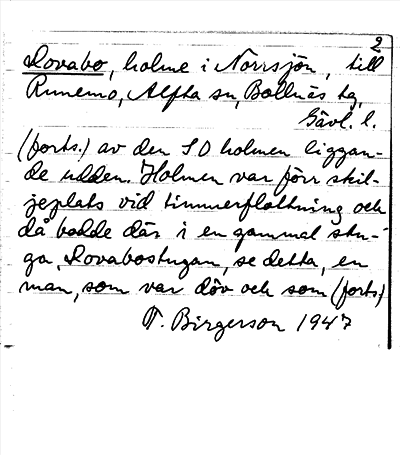 2
Lovabo, holme i Norrsjön, till
Runemo, Alfta sn, Bollnäs tg,
Gävl. l.
(forts.) av den S O holmen liggan-
de udden. Holmen var förr skil-
jeplats vid timmerflottning och
då bodde där i en gammal stu-
ga, Lovabostugan, se detta, en
man, som var döv och som (forts)
T. Birgerson 1947